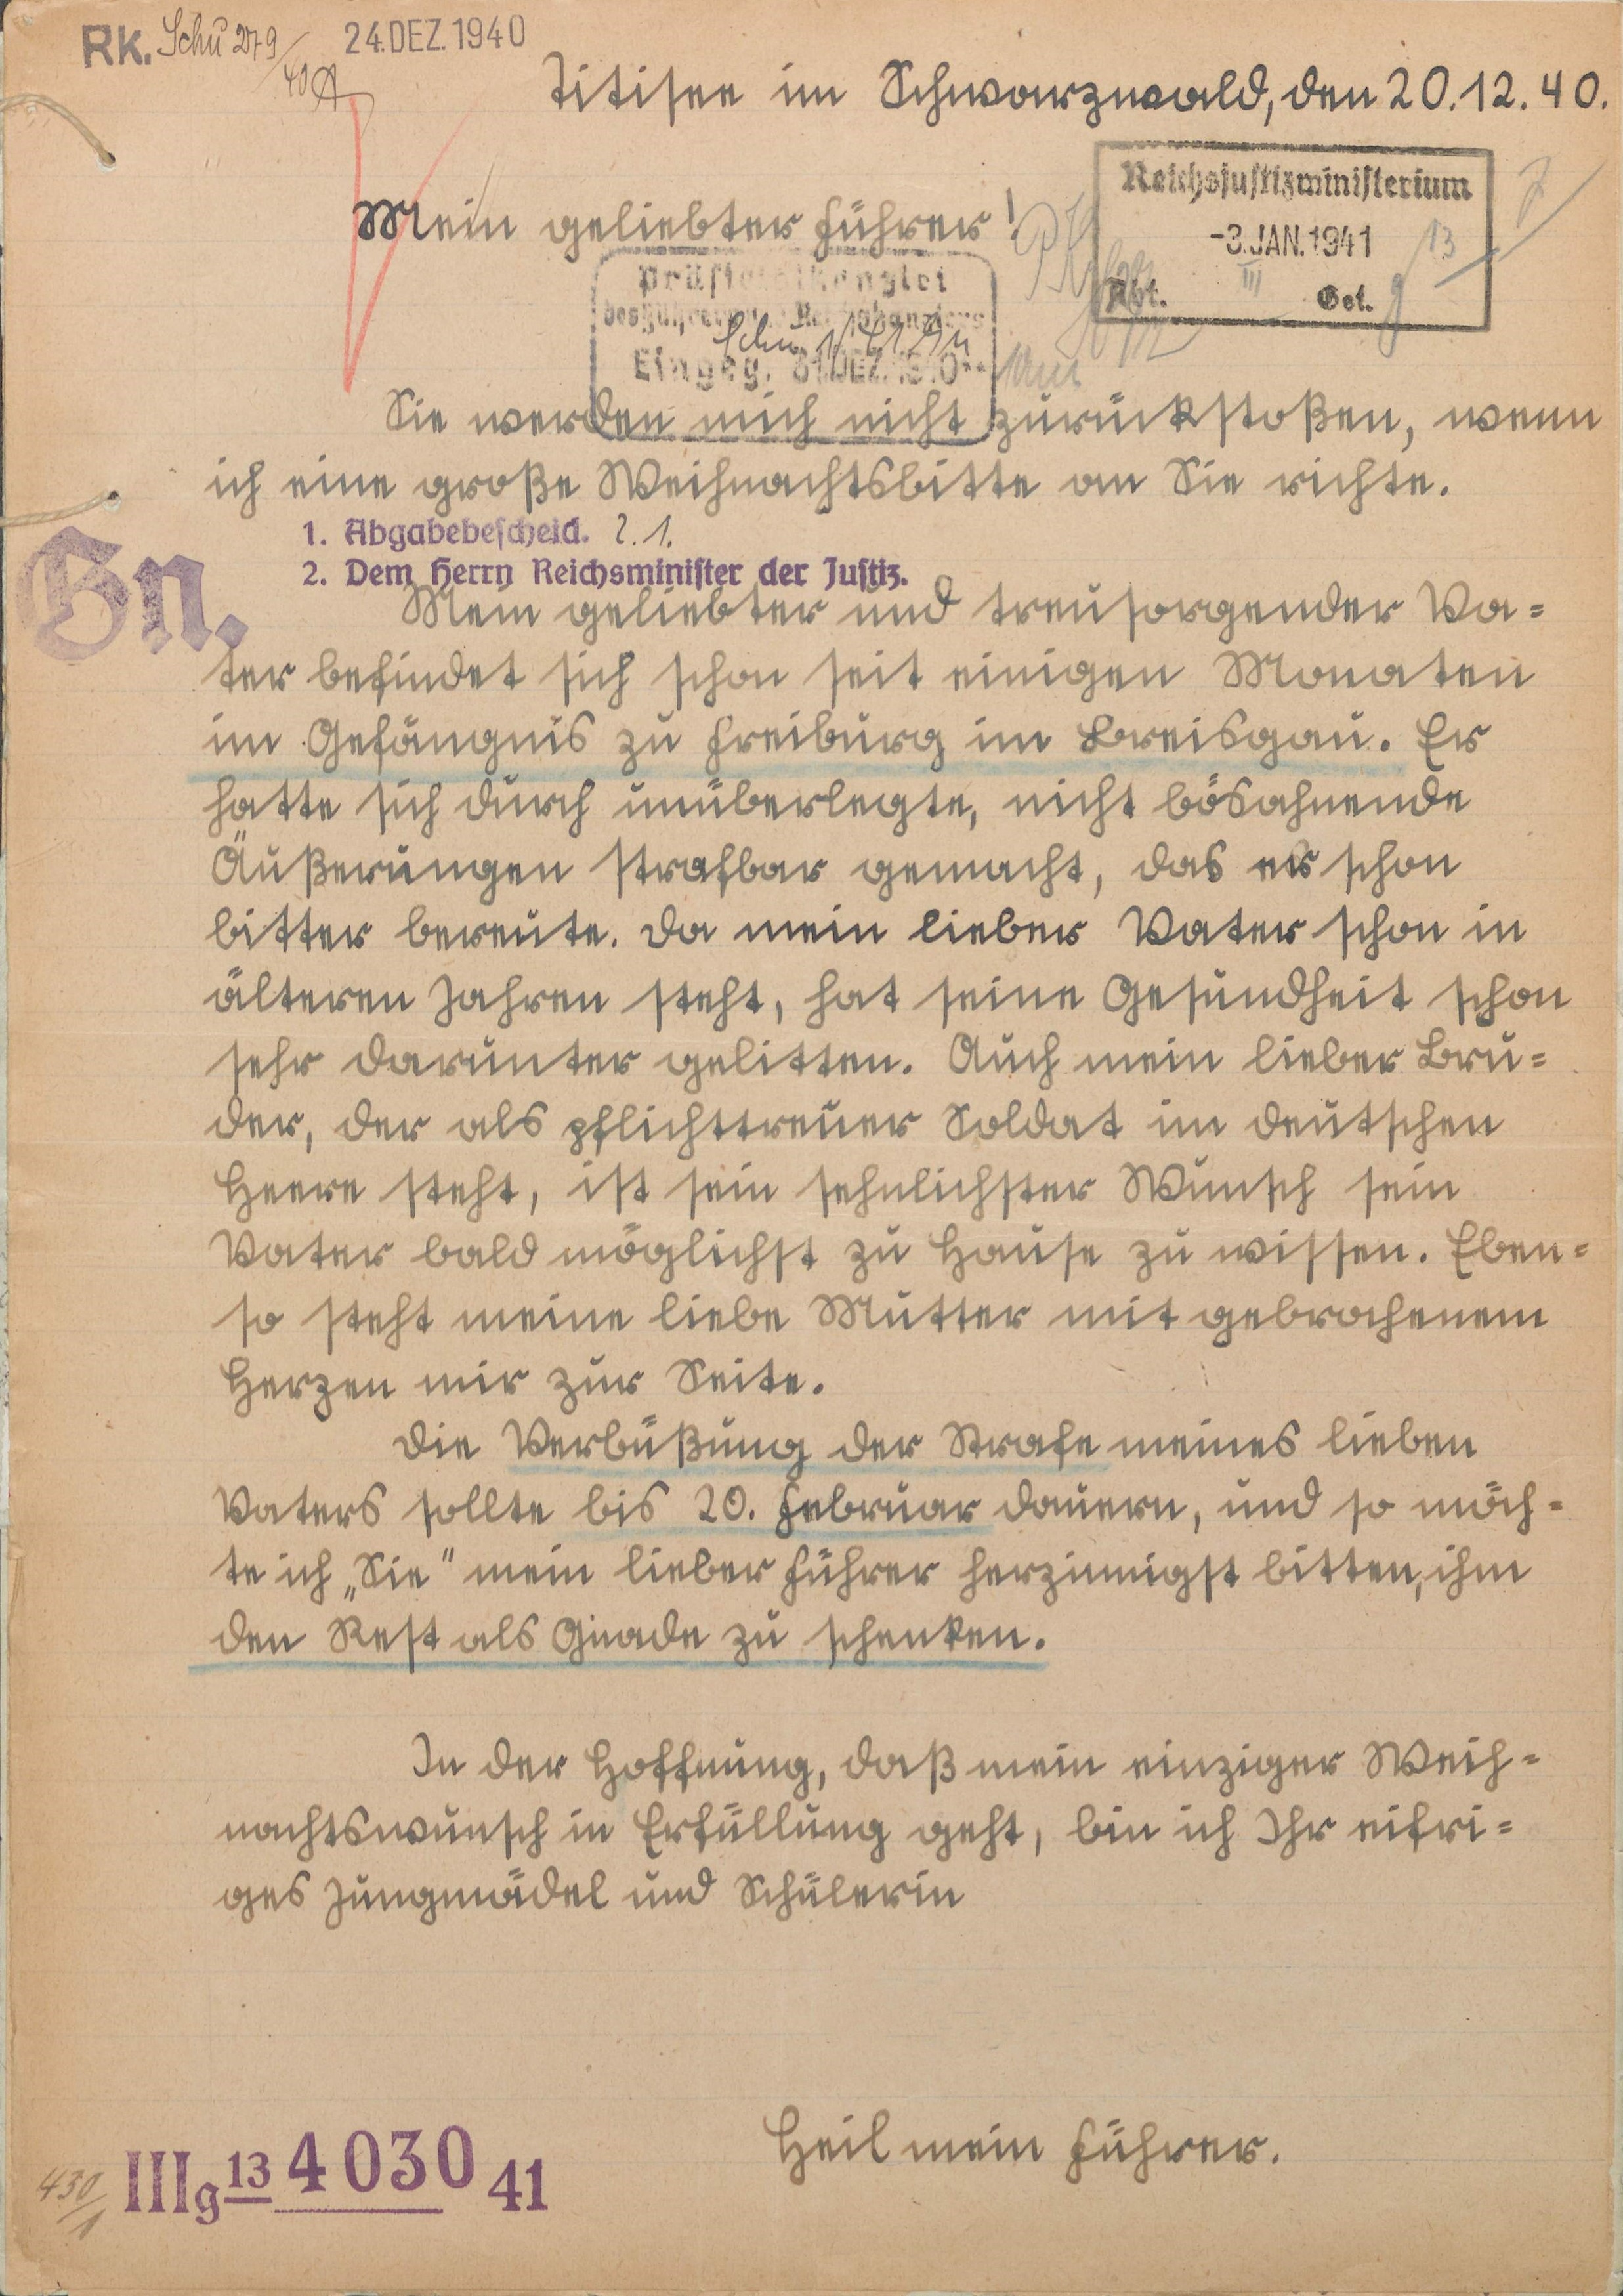 RK. Schu 279/40 A 24. DEZ. 1940
Titisee im Schwarzwald, den 20.12.40.
Reichsjustizministerium
-3. JAN. 1941 13
Abt. III g
Mein geliebter Führer!
Präsidialkanzlei
des Führers und Reichskanzlers
Eingeg. 31. DEZ. 1940
Sie werden mich nicht zurückstoßen, wenn
ich eine große Weihnachtsbitte an Sie richte.
1. Abgabebescheid. 2.1.
2. Dem Herrn Reichsminister der Justiz.
Gn.
Mein geliebter und treusorgender Va=
ter befindet sich schon seit einigen Monaten
im Gefängnis zu Freiburg im Breisgau. Er
hatte sich durch unüberlegte, nicht bösahnende
Äußerungen strafbar gemacht, das er schon
bitter bereute. Da mein lieber Vater schon in
älteren Jahren steht, hat seine Gesundheit schon
sehr darunter gelitten. Auch mein lieber Bru=
der, der als pflichttreuer Soldat im deutschen
Heere steht, ist sein sehnlichster Wunsch sein
Vater bald möglichst zu Hause zu wissen. Eben=
so steht meine liebe Mutter mit gebrochenem
Herzen mir zur Seite.
Die Verbüßung der Strafe meines lieben
Vaters sollte bis 20. Februar dauern, und so möch=
te ich „Sie" mein lieber Führer herzinnigst bitten, ihm
den Rest als Gnade zu schenken.
In der Hoffnung, daß mein einziger Weih=
nachtswunsch in Erfüllung geht, bin ich Ihr eifri=
ges Jungmädel und Schülerin
Heil mein Führer.
430/1 IIIg 13 4030 41